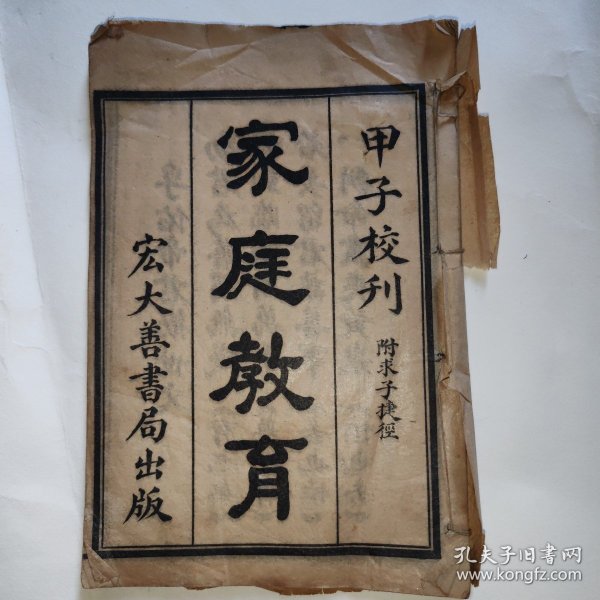 甲子校刊
附求子捷徑
家庭教育
宏大善書局出版
孔夫子旧书网
www.kongfz.com